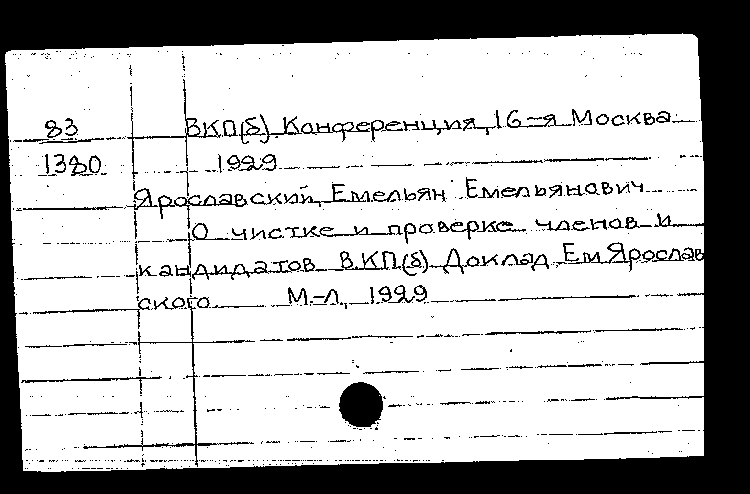 83 ВКП(б) Конференция, 16-я Москва
1380 1929
Ярославский, Емельян Емельянович
О чистке и проверке членов и
кандидатов В.КП(б) Доклад Ем Ярослав
ского М.-Л, 1929